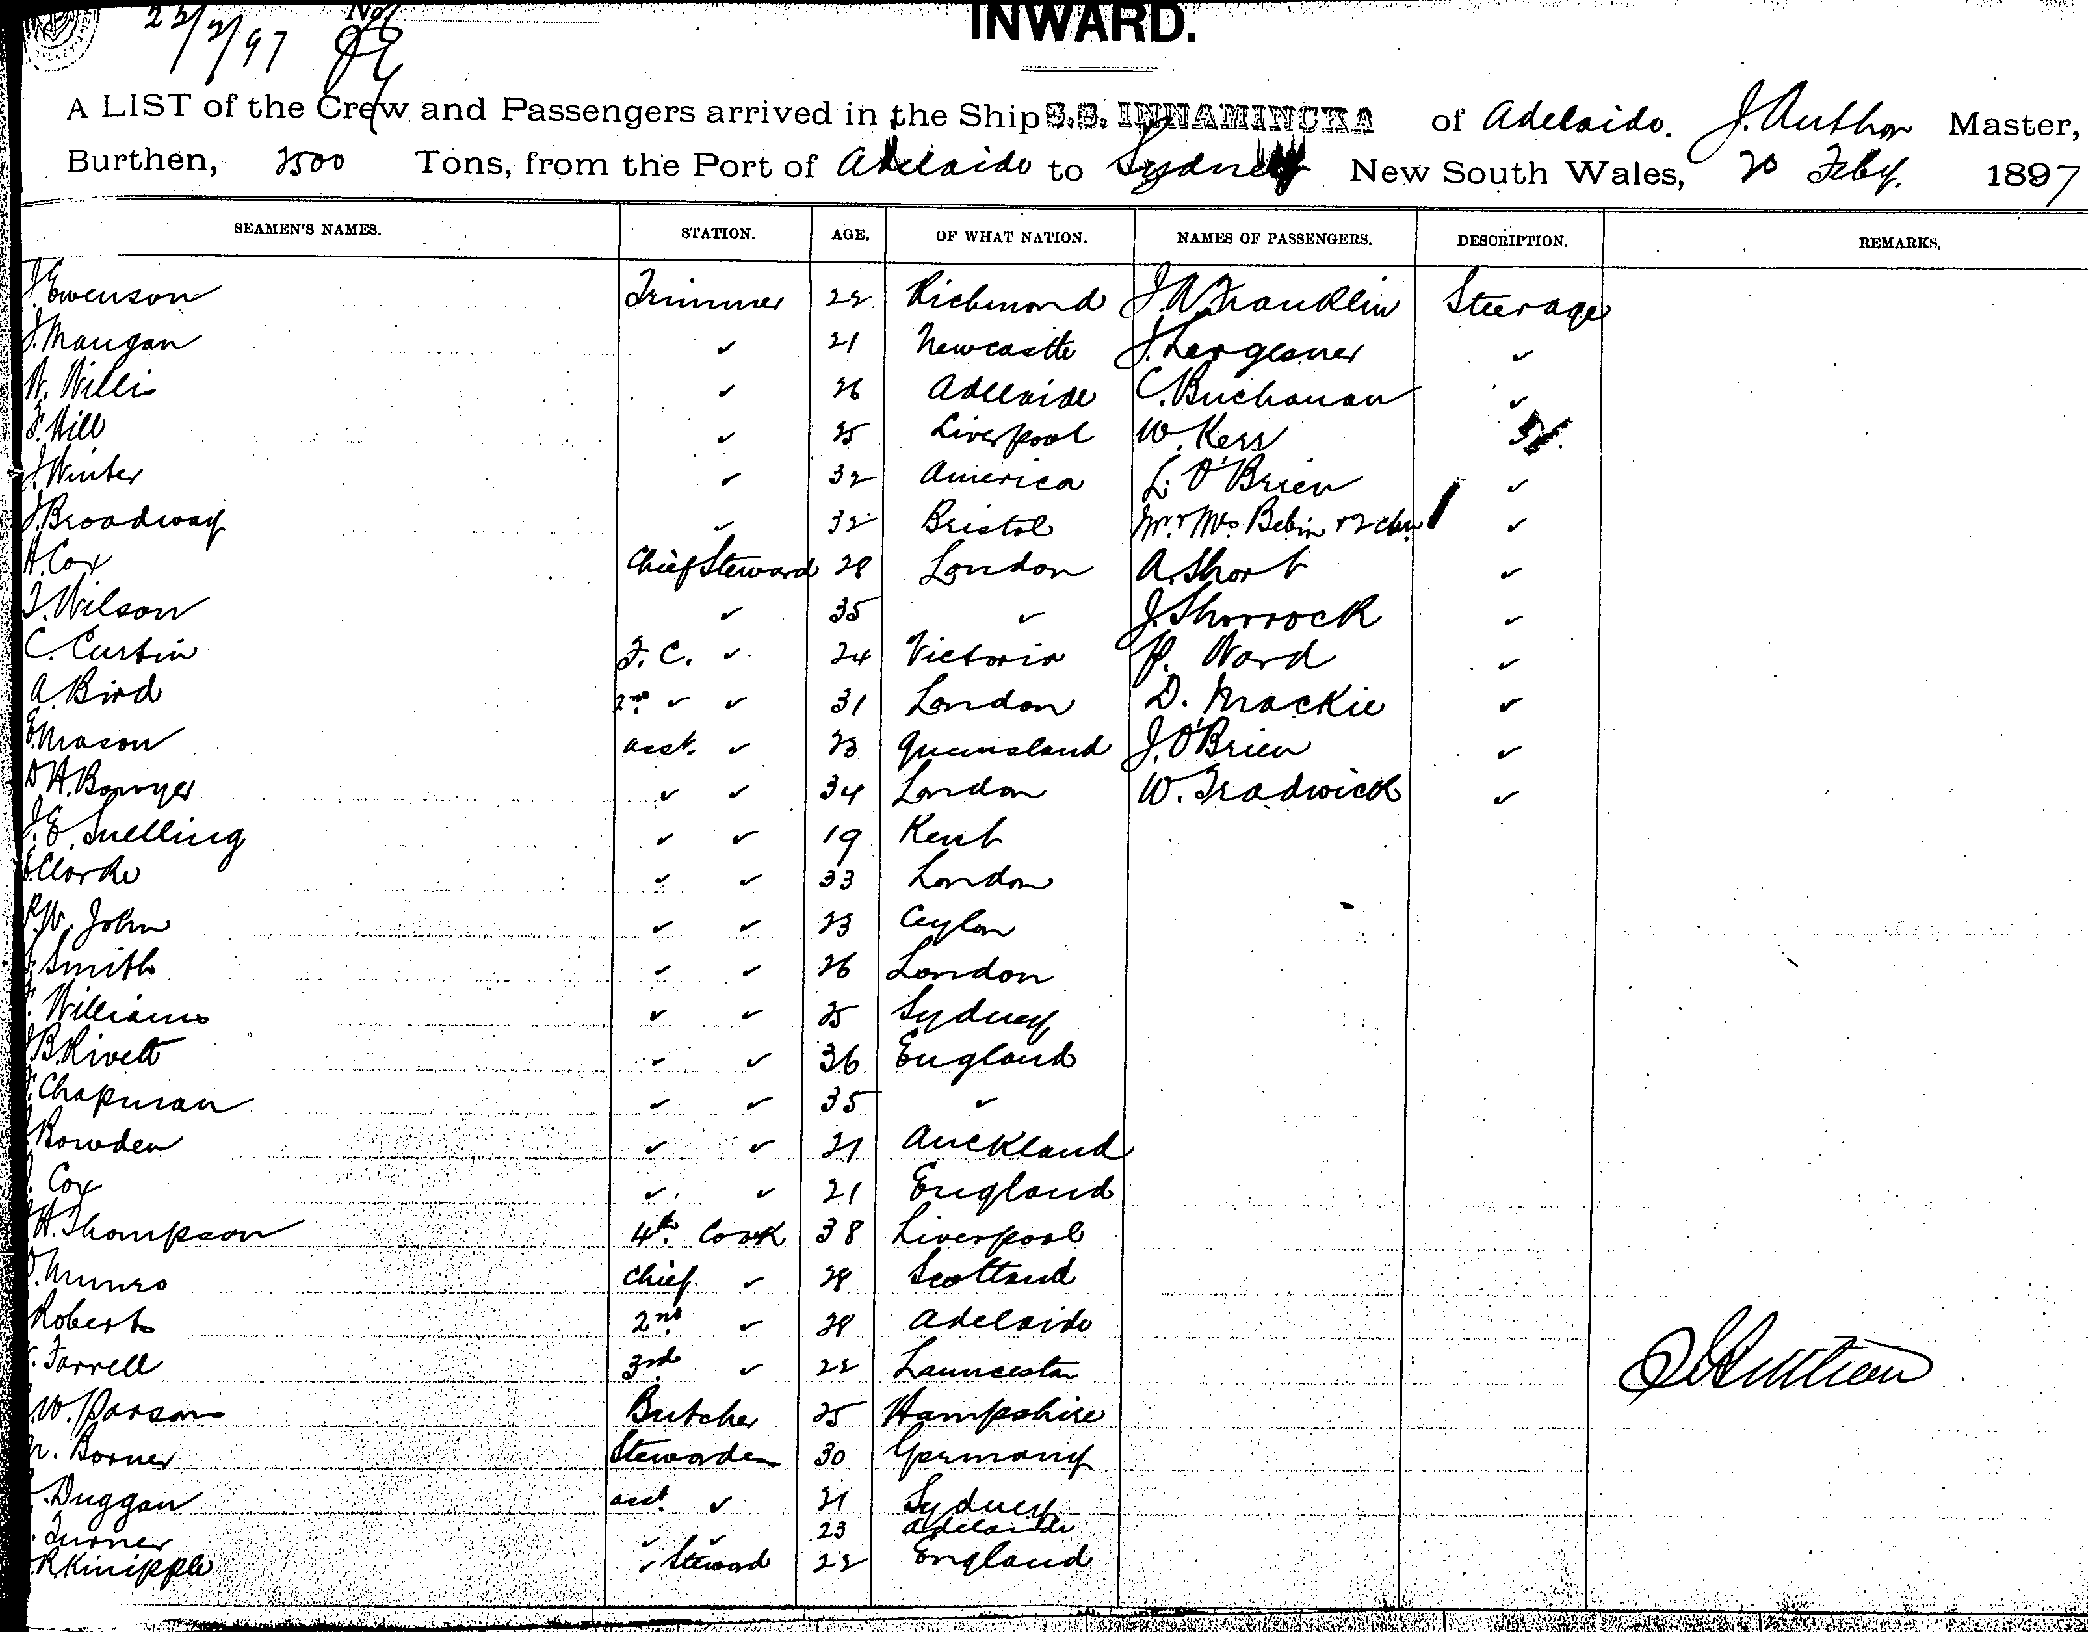 22/2/97 No
INWARD.
A LIST of the Crew and Passengers arrived in the Ship S.S. INNAMINCKA of Adelaide. J. Arthur Master,
Burthen, 2500 Tons, from the Port of Adelaide to Sydney New South Wales, 20 Feby. 1897
SEAMEN'S NAMES. STATION. AGE. OF WHAT NATION. NAMES OF PASSENGERS. DESCRIPTION. REMARKS.
J Ewenson Trimmer 22 Richmond J. A. Franklin Steerage
J. Mangan ✓ 21 Newcastle J. ✓
W. Willis ✓ 26 Adelaide C. Buchanan ✓
F. Hill ✓ 25 Liverpool W. Kerr
J. Winter ✓ 32 America L. O'Brien ✓
J. Broadway ✓ 32 Bristol Mr & Mrs Bebin & 2 chn ✓
H. Cox Chief Steward 28 London A. Short ✓
T. Wilson ✓ 35 ✓ J. Shorrock ✓
C. Curtin F. C. ✓ 24 Victoria P. Ward ✓
A. Bird 2nd ✓ ✓ 31 London D. Mackie ✓
E. Mason asst. ✓ 23 Queensland J. O'Brien ✓
D H. Bowyer ✓ ✓ 34 London W. Tradwick ✓
J. E. Snelling ✓ ✓ 19 Kent
Clarke ✓ ✓ 33 London
P. W. John ✓ ✓ 23 Ceylon
J. Smith ✓ ✓ 26 London
Williams ✓ ✓ 25 Sydney
J B. Rivett ✓ ✓ 36 England
Chapman ✓ ✓ 35 ✓
Bowden ✓ ✓ 21 Auckland
Cox ✓ ✓ 21 England
H. Thompson 4th Cook 38 Liverpool
D. Munro Chief ✓ 28 Scotland
Roberts 2nd ✓ 28 Adelaide
Farrell 3rd ✓ 22 Launceston
W. Parsons Butcher 25 Hampshire
Borner Stewardess 30 Germany
Duggan asst. ✓ 21 Sydney
Turner ✓ ✓ 23 Adelaide
R Kinipple ✓ Steward 22 England